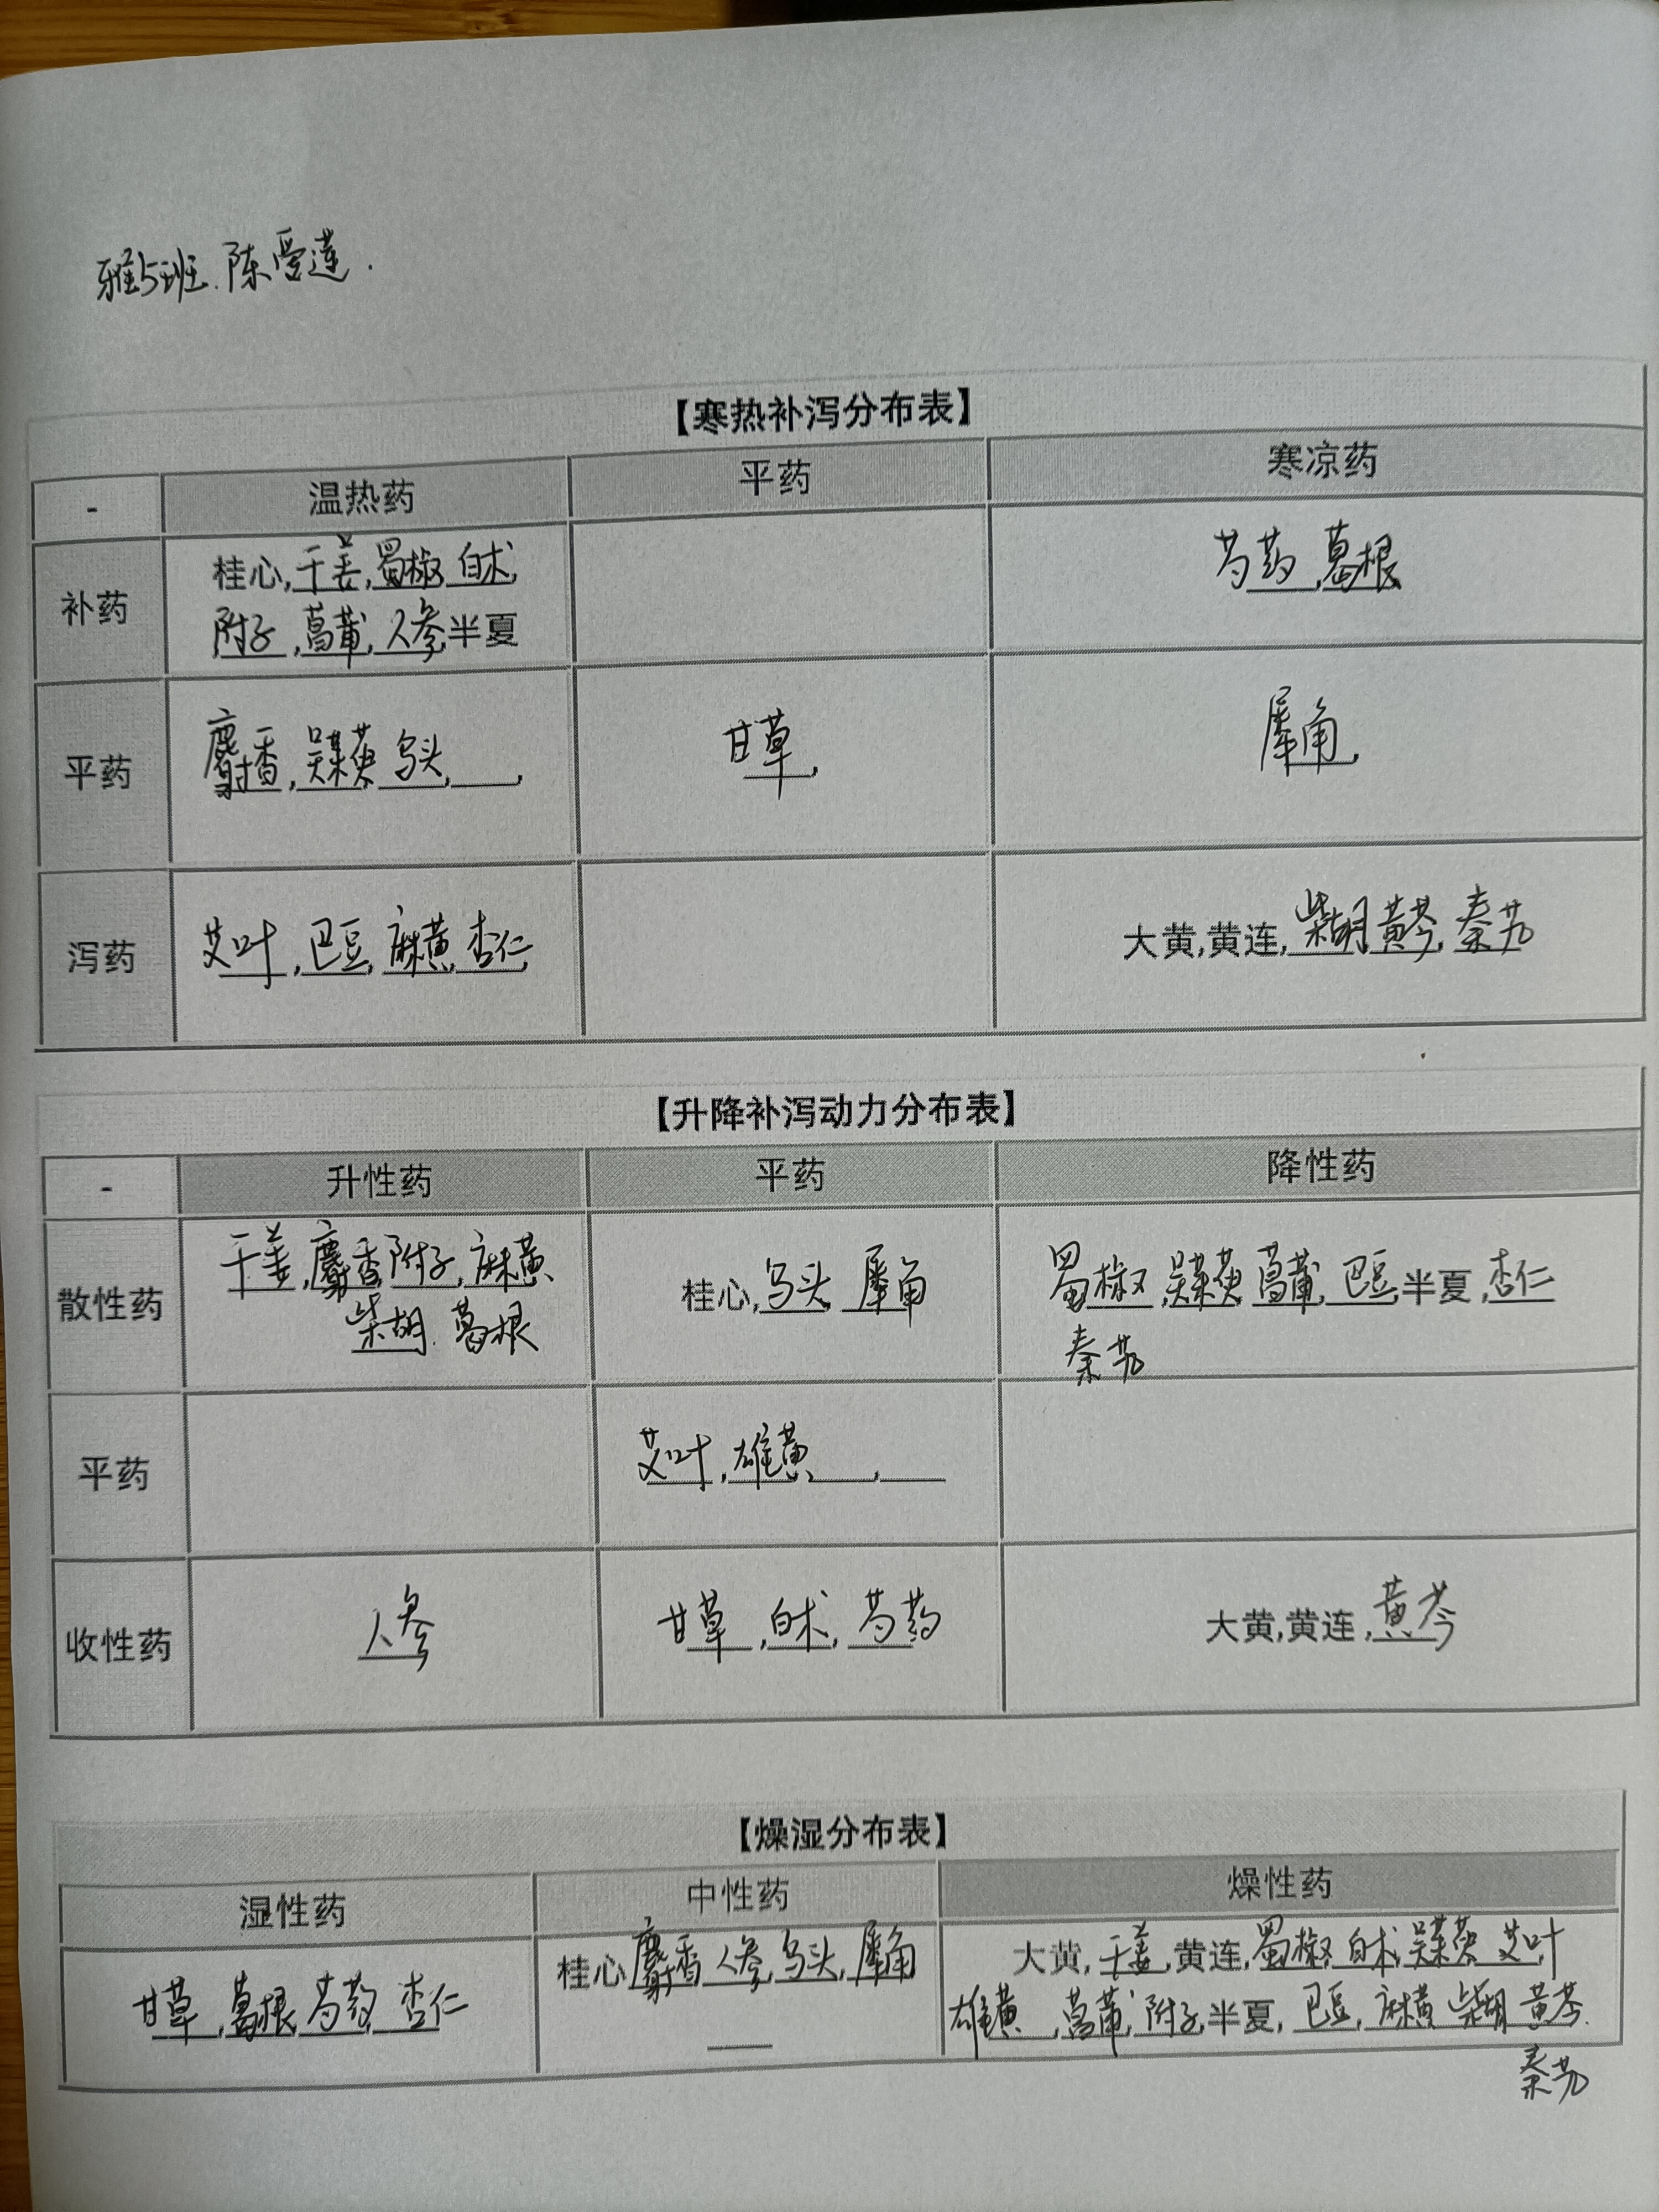 雅5班.陈爱莲.
【寒热补泻分布表】
- 温热药 平药 寒凉药
补药 桂心,干姜,蜀椒,白术, 芍药,葛根
附子,菖蒲,人参,半夏
平药 麝香,吴茱萸,乌头,___, 甘草, 犀角,
泻药 艾叶,巴豆,麻黄,杏仁, 大黄,黄连,柴胡,黄芩,秦艽
【升降补泻动力分布表】
- 升性药 平药 降性药
散性药 干姜,麝香,附子,麻黄, 桂心,乌头,犀角 蜀椒,吴茱萸,菖蒲,巴豆,半夏,杏仁
柴胡.葛根 秦艽
平药 艾叶,雄黄___,___
收性药 人参 甘草,白术,芍药 大黄,黄连,黄芩
【燥湿分布表】
湿性药 中性药 燥性药
甘草,葛根,芍药,杏仁 桂心,麝香,人参,乌头,犀角 大黄,干姜,黄连,蜀椒,白术,吴茱萸,艾叶
___ 雄黄,菖蒲,附子,半夏,巴豆,麻黄,柴胡,黄芩.
秦艽